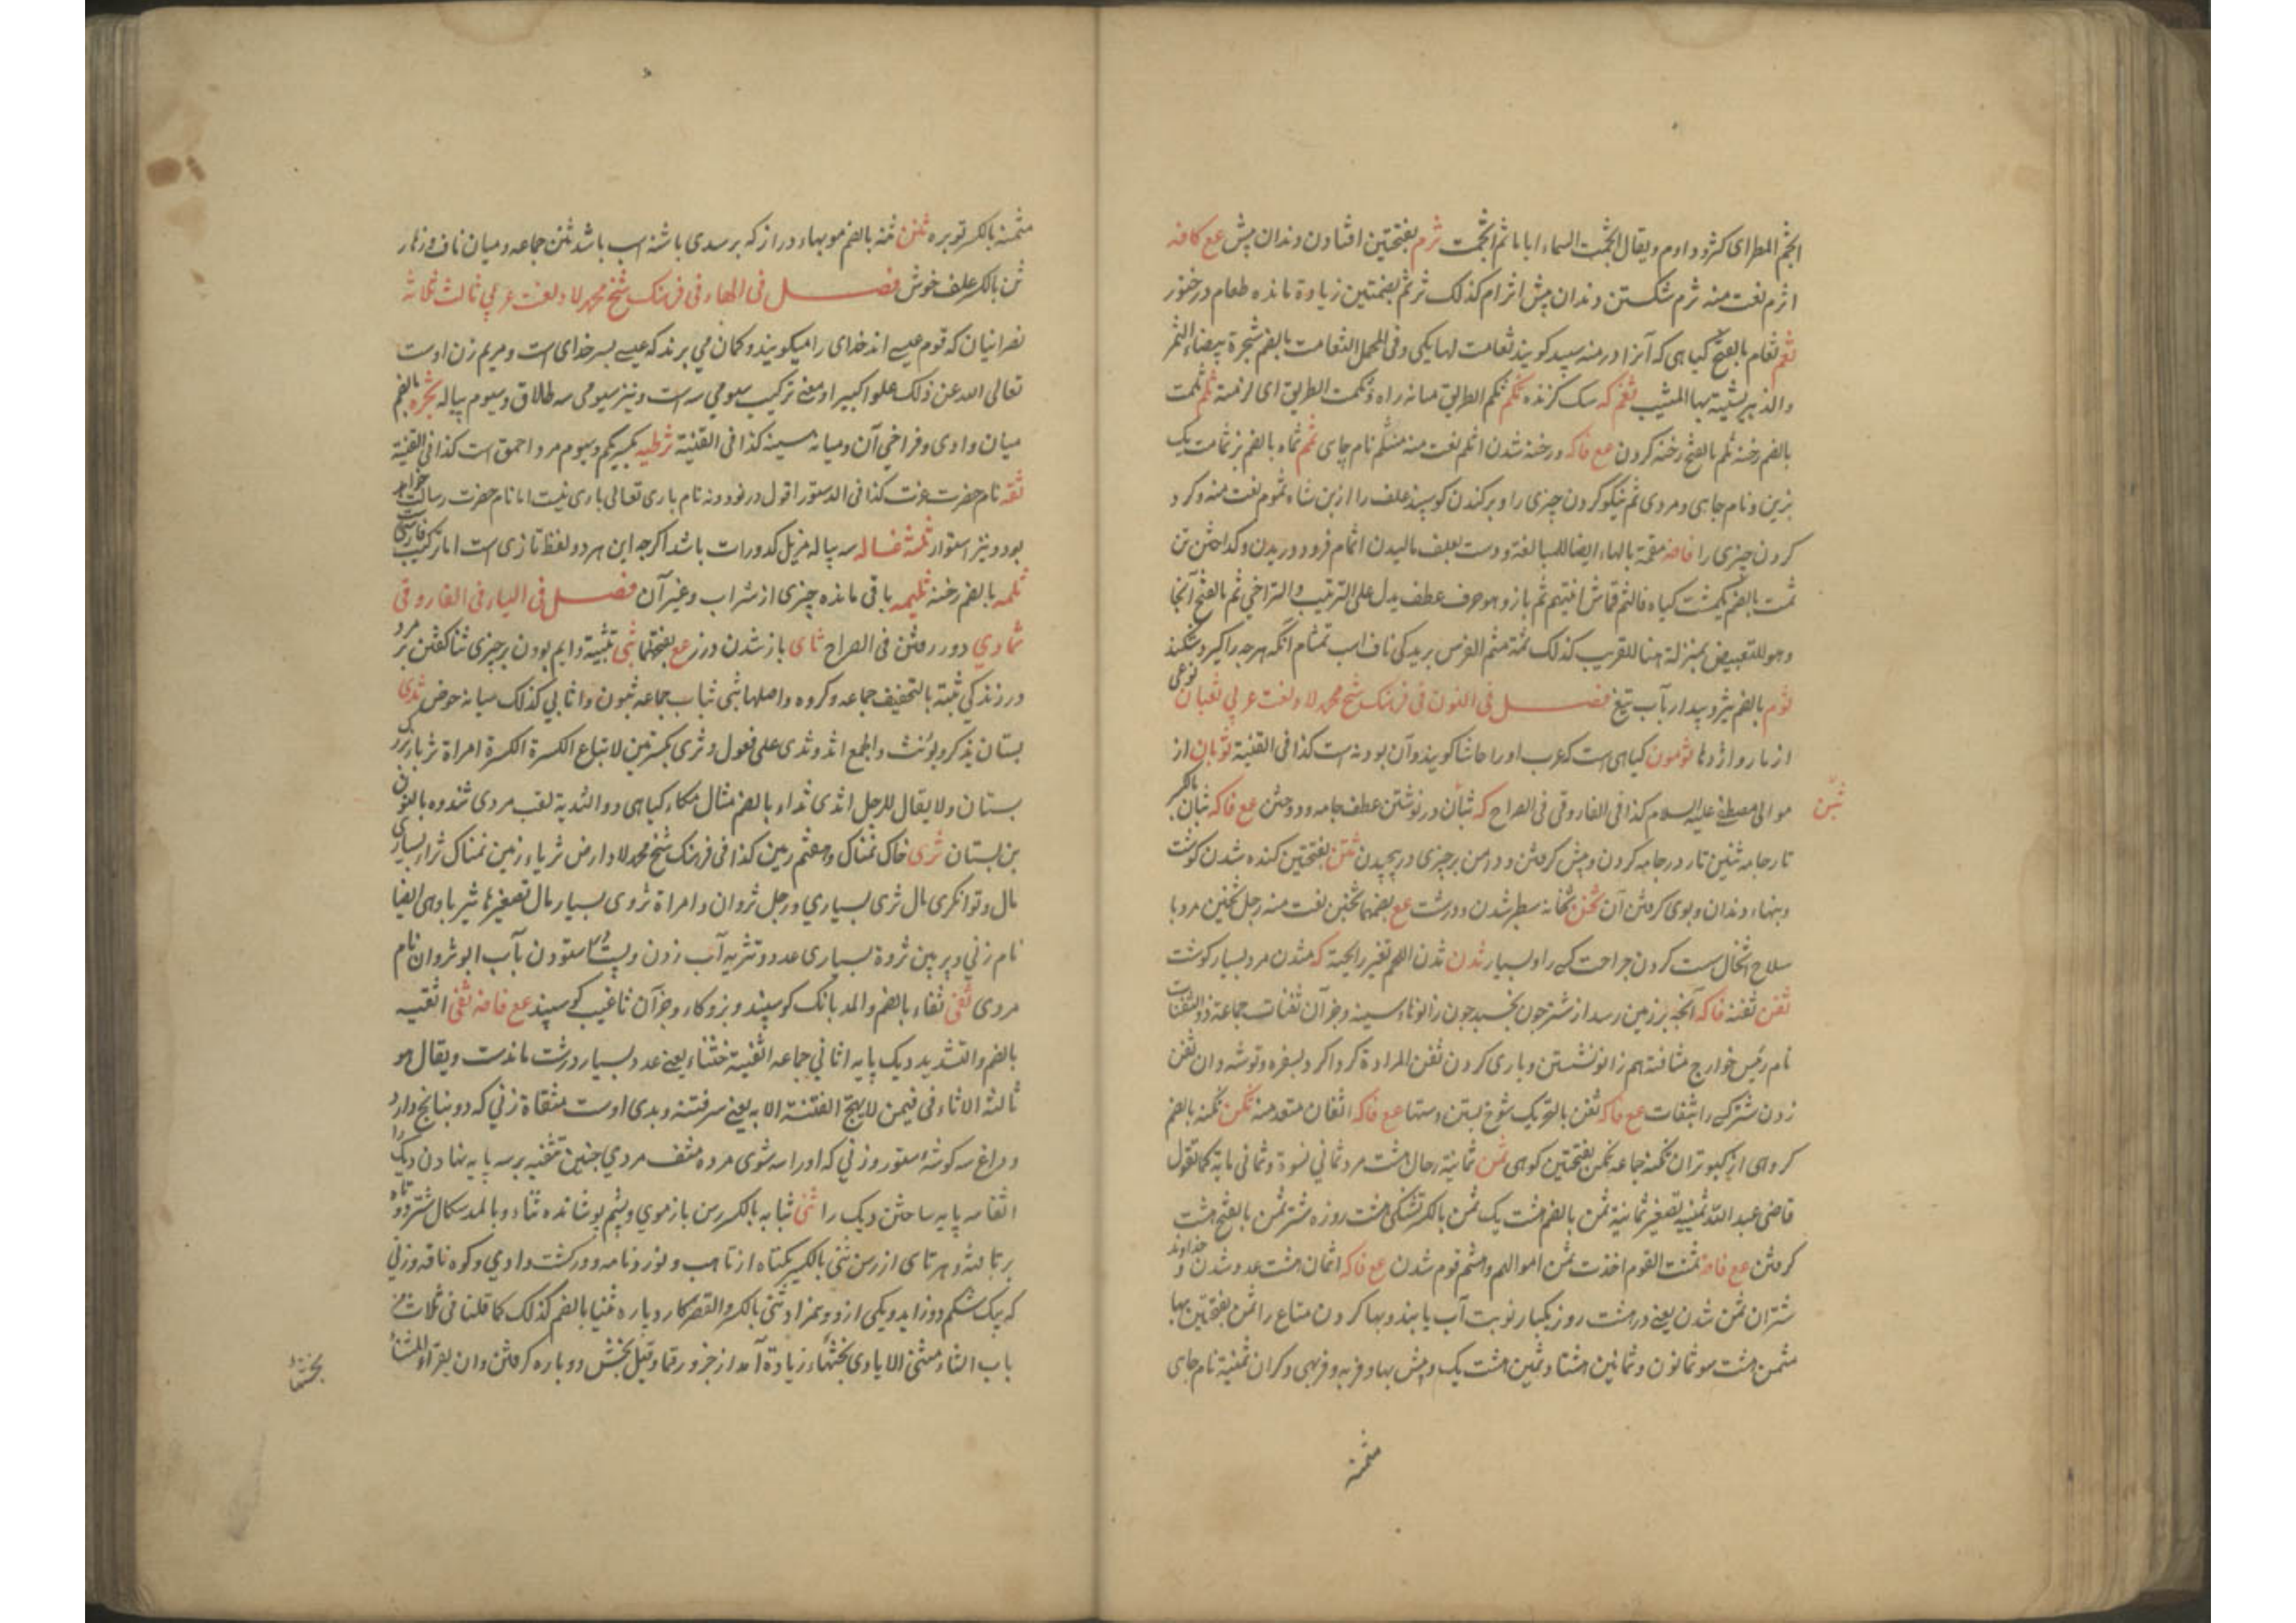 اثجم المطر ای کثر و دام و یقال اثجمت السماء ایاما ثم انجمت ثرم بفتحتین افتادن دندان پیش عع کافه
اثرم نعت منه ثرم شکستن دندان پیش اثرام کذلک ثرتم بضمتین زیادة مانده طعام در خنور
ثغم ثغام بالفتح کیاهی که آنرا درمنه سپید کویند ثغامت لها یکی و فی المجمل الثغامت بالضم شجرة بیضاء الثمر
والذهیر یشبه بها المشیب ثغم که سک کزنده ثکم ثکم الطریق میانه راه و ثکمت الطریق ای لزمته ثلم ثلمت
بالضم رخنه ثلم بالفتح رخنه کردن عع فاکه و رخنه شدن اثلم نعت منه متثلم نام جای ثمم ثمام بالضم یز ثمامت یک
یزین و نام جاهی و مردی ثم نیکو کردن چیزی را و برکندن کوسپند علف را از بن شاه ثموم نعت منه و کرد
کردن چیزی را فاضه مقمة بالهاء ایضا للمبالغة و دست بعلف مالیدن انثمام فرود دویدن و کداختن تن
ثمت بالضم یکمشت کیاه فالثم قماش افتیهم ثم باز و هو حرف عطف یدل علی الترتیب والتراخی ثم بالفتح آنجا
و هو للتبعیض بمنزلة هنا للقریب کذلک ثمة مثم الفرس بریدکی ناف اسب ثمثام آنکه هرچه را کیرد شکند
ثوم بالضم شیر و پیداد بآب تیغ فصل فی النون فی فرهنک شیخ محمد لاد لغت عربی ثعبان نوعی
از مار و اژدها ثومون کیاهی است که عرب او را حاشا کویند و آن پودنه است کذا فی القنیة ثوبان از
موالی مصطفی علیه السلام کذا فی الفاروقی فی الصراح که ثبان در نوشتن عطف جامه و دوختن عع فاکه ثبان بالکسر
ثبن
تار جامه ثبین تار در جامه کردن و پیش کرفتن و دامن بر چیزی در پیچیدن ثتن بفتحتین کنده شدن کوشت
و بنهاء دندان و بوی کرفتن آن ثخن ثخانه سطبر شدن و درشت عع بضمهما ثخین نعت منه رجل ثخین مرد با
سلاح اثخان سست کردن جراحت کسی را و بسیار ثدن ثدن اللحم تغیر رایحته که مثدن مرد بسیار کوشت
ثفن ثفنه فاکه آنچه بر زمین رسد از شتر چون بخسبد چون زانو و سینه و جز آن ثفنات جماعه ذو الثفنات
نام رئیس خوارج مثافنة هم زانو نشستن و یاری کردن ثفن المرادة کرد اکرد سفره و توشه دان ثفن
زدن شتر کسی را بثفنات عع فاکه ثفن بالتحریک شوخ بستن دستها عع فاکه اثفان متعد منه ثکن ثکنه بالضم
کروهی از کبوتران ثکنة جماعه ثکن بفتحتین کوهی ثمن ثمانیة رجال هشت مرد ثمانی نسوة و ثمانی مایة کما تقول
قاضی عبد الله ثمینیه تصغیر ثمانیة ثمن بالضم هشت یک ثمن بالکسر تشنکی هشت روزه شتر ثمن بالفتح هشت
کرفتن عع فاضه ثمنت القوم اخذت ثمن اموالهم و هشتم قوم شدن عع فاکه اثمان هشت عدد شدن و خداوند
شتران ثمن شدن یعنی در هشت روز یکبار نوبت آب یابند و بها کردن متاع را ثمن بفتحتین بها
مثمن هشت سو ثمانون و ثمانین هشتاد ثمین هشت یک و بیش بها و فربه و فربهی و کران ثمینة نام جاهی
مثمنه
مثمنه بالکسر توبره ثنن ثنه بالضم مویهاء دراز که بر سدی پاشنه اسب باشد ثنن جماعه و میان ناف و زهار
ثن بالکسر علف خوش فصل فی الهاء فی فرهنک شیخ محمد لاد لغت عربی ثالث ثلاثه
نصرانیان که قوم عیسی اند خدای را میکویند و کمان می برند که عیسی پسر خدای است و مریم زن اوست
تعالی الله عن ذلک علوا کبیرا و معنی ترکیب سومی سه است و نیز سیومی سه طلاق و سیوم پیاله ثجره بالضم
میان وادی و فراخی آن و میانه سینه کذا فی القنیة ثرطیه بکسر یکم و سیوم مرد احمق است کذا فی القنیة
ثقه نام حضرت عزت کذا فی الدستور اقول در نود و نه نام باری تعالی باری نیست اما نام حضرت رسالت خواهد
بود و نیز استوار ثلثه غساله سه پیاله مزیل کدورات باشد اکرچه این هر دو لفظ تازی است اما ترکیب فارسی است
ثلمه بالضم رخنه ثلیمه باقی مانده چیزی از شراب و غیر آن فصل فی الیاء فی الفاروقی
ثماوی دور رفتن فی الصراح ثای باز شدن درز عع بفتحهما ثبی تثبیة دایم بودن بر چیزی ثنا کفتن مرد بر
در زندکی ثبة بالتخفیف جماعه و کروه و اصلها ثبی ثبات جماعه ثبون و اثابی کذلک میانه حوض ثدی
پستان یذکر و یونث والجمع اثد و ثدی علی فعول و ثدی بکسرتین لاتباع الکسرة الکسرة امراة ثدیاء بزرک
پستان و لا یقال للرجل اثدی ثداء بالضم مثال مکاء کیاهی ذو الثدیة لقب مردی ثندوه بالنون
بن پستان ثری خاک نمناک و هفتم زمین کذا فی فرهنک شیخ محمد لاد ارض ثریاء زمین نمناک ثراء بسیاری
مال و توانکری مال ثری بسیاری و رجل ثروان و امراة ثروی بسیار مال تصغیرها ثریا و هی ایضا
نام زنی و پروین ثروة بسیاری عدد و تثریه آب زدن و پست ستودن بآب ابو ثروان نام
مردی ثغی ثغاء بالضم والمد بانک کوسپند و بز و کاو و جز آن ثاغیه کوسپند عع فاضه ثفی اثفیه
بالضم والتشدید دیک پایه اثافی جماعه اثفیة خشناء یعنی عدد بسیار درشت ماندت و یقال هو
ثالثة الاثافی فیمن لا یهیج الفتنة الا به یعنی سر فتنه و بدی اوست مثفاة زنی که دو بنانج دارد
و داغ سه کوشه استور و زنی که او را سه شوی مرده مثف مردی چنین تثفیه بر سه پایه نهادن دیک را
اثفا سه پایه ساختن دیک را ثنی ثنایه بالکسر رسن باز موی و پشم پوشانده ثناء و بالمد سکال شتر دوتاه
برتافته و هر تای از رسن ثنی بالکسر یکتاه از تا هب و نوردنامه و در کشت وادی و کوه ناقه و زنی
که یک شکم دو زاید و یکی از دو و همزاد ثنی بالکسر والقصر کار دوباره ثنیا بالضم کذلک کما قلنا فی ثلاث من
باب الثاء مثنی الایادی بخشهاء زیادة آمد از جزور قما و قیل بخش دوباره کرفتن و ان یقرأ المثناة
بخشها